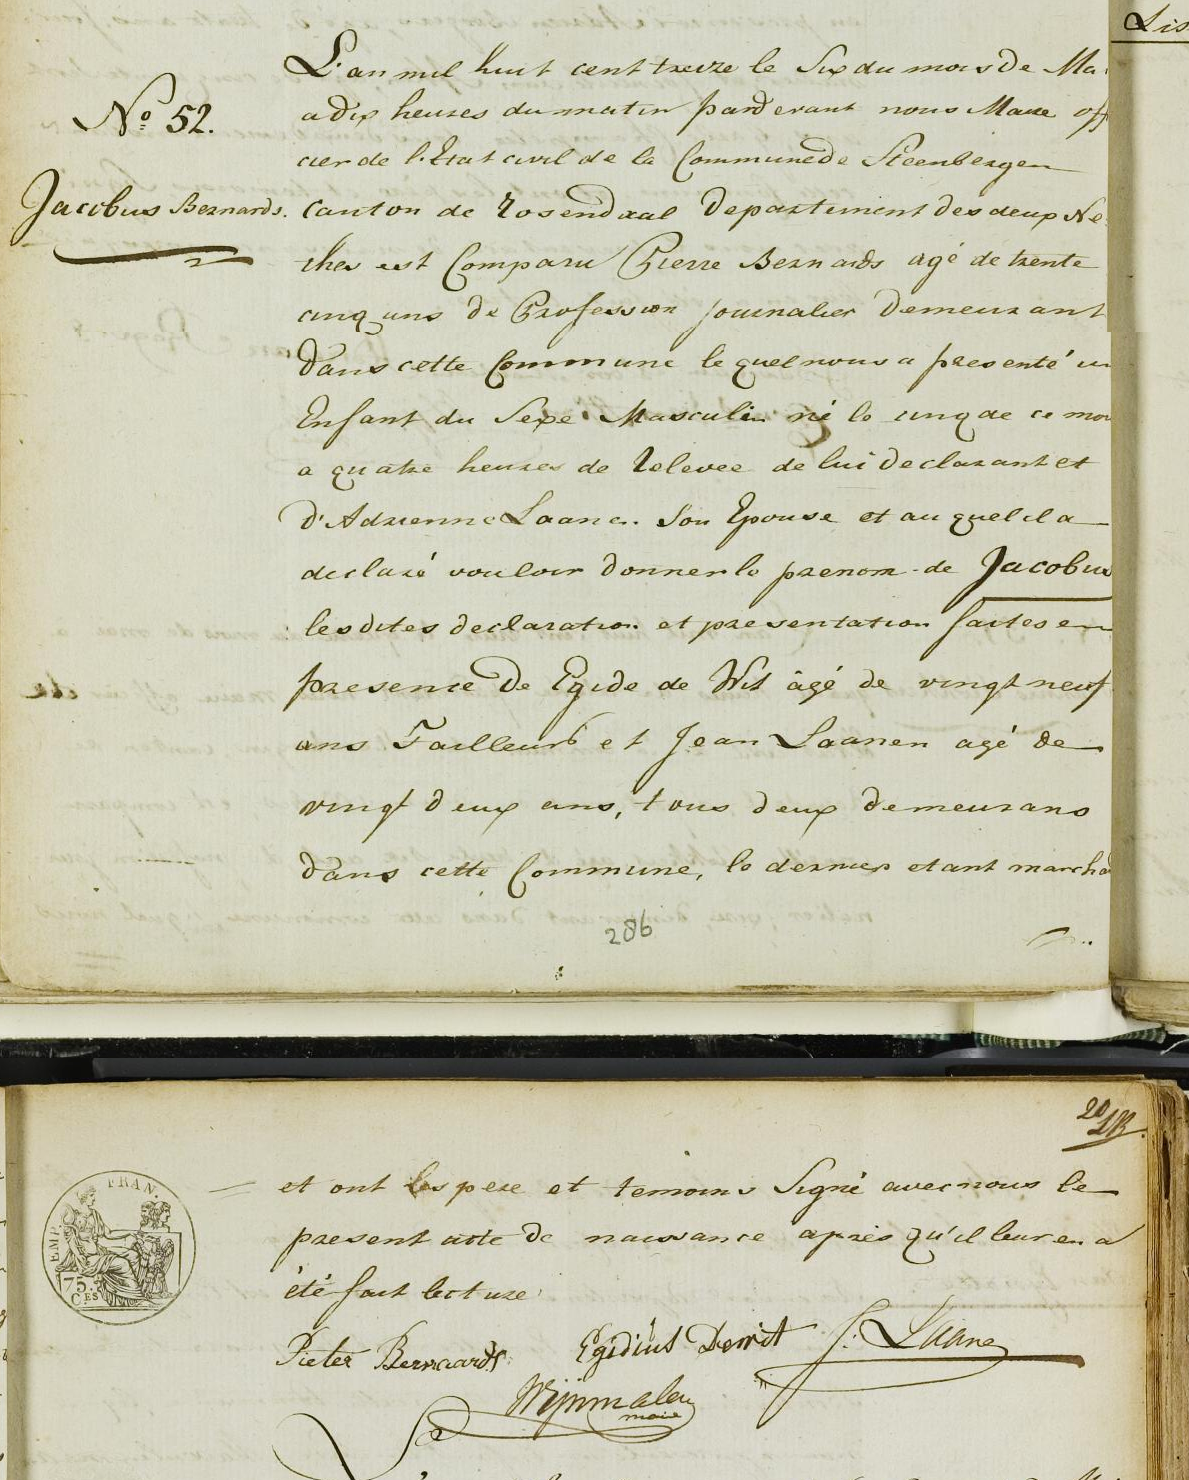 Lis
No 52.
Jacobus Bernards.
L'an mil huit cent treize le Six du mois de Ma
a dix heures du matin pardevant nous Maire off
cier de l'Etat civil de la Commune de Steenbergen
Canton de Rosendaal Departement des deux Ne
thes est Comparu Pierre Bernards agé de trente
cinq ans de Profession journalier Demeurant
Dans cette Commune le quel nous a presenté un
Enfant du Sexe Masculin né le cinq de ce moi
a quatre heures de Relevee de lui declarant et
d'Adrienne Laane. Son Epouse et au quel il a
declaré vouloir Donner le prenom de Jacobus
les dites declaration et presentation faites en
presence De Egide de Wit âgé de vingt neuf
ans Tailleur et Jean Laanen agé de
vingt deux ans, tous deux demeurans
Dans cette Commune, le dernier etant march
286
20
et ont les pere et temoins Signé avec nous le
present acte de naissance après qu'il leur en a
été fait lecture
EMP. FRAN.
75. C.ES
Pieter Bernaards Egidius Dewit J. Laane
Wijnmalen
maire